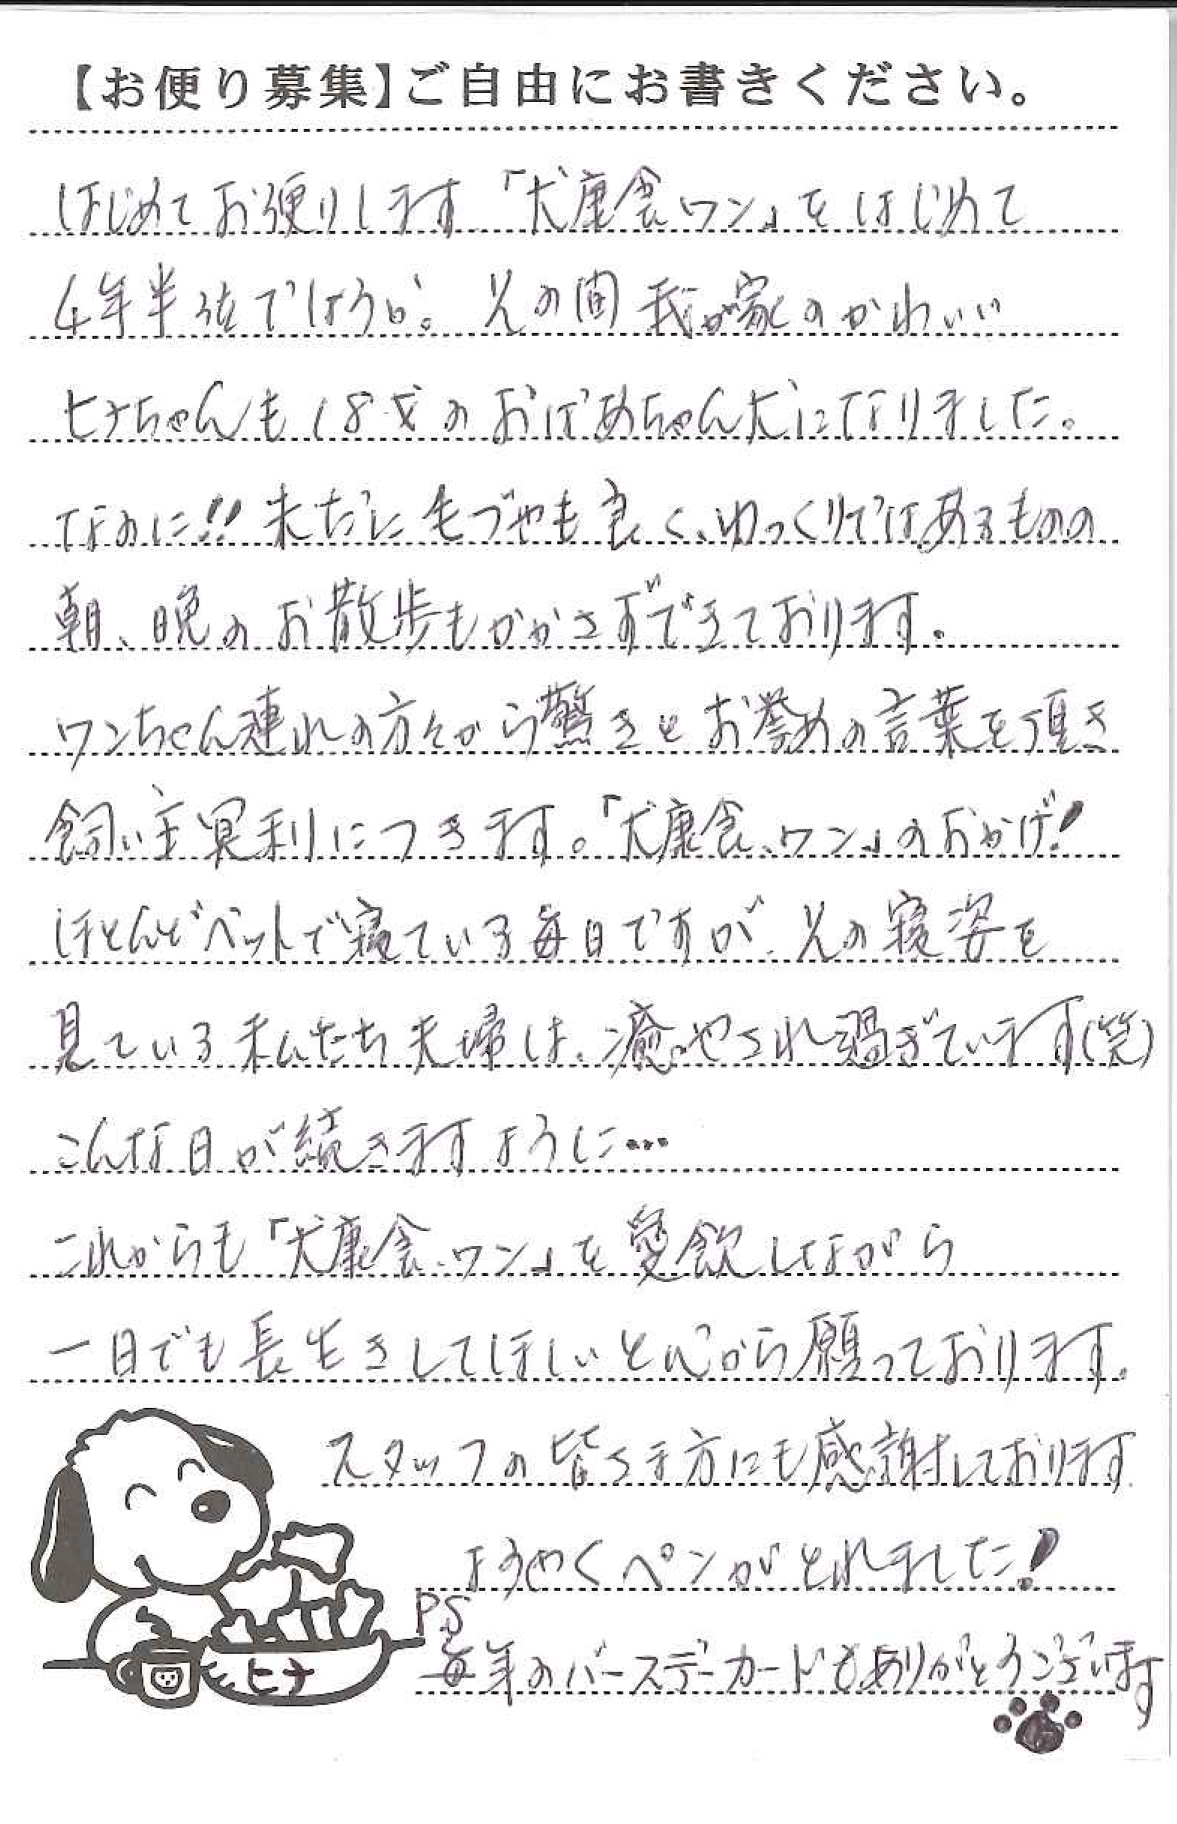 【お便り募集】ご自由にお書きください。
はじめてお便りします「犬康食ワン」をはじめて
4年半位でしょうか。その間我が家のかわいい
ヒナちゃんも18才のおばあちゃん犬になりました。
なのに!!未だに毛づやも良く、ゆっくりではあるものの
朝、晩のお散歩もかかさずできております。
ワンちゃん連れの方々から驚きとお誉めの言葉を頂き
飼い主冥利につきます。「犬康食、ワン」のおかげ!
ほとんどベットで寝ている毎日ですが、その寝姿を
見ている私たち夫婦は、癒やされ過ぎています(笑)
こんな日が続きますように…
これからも「犬康食、ワン」を愛飲しながら
一日でも長生きしてほしいと心から願っております。
スタッフの皆さま方にも感謝しております
ようやくペンがとれました!
PS
毎年のバースデーカードもありがとうございます
ヒナ